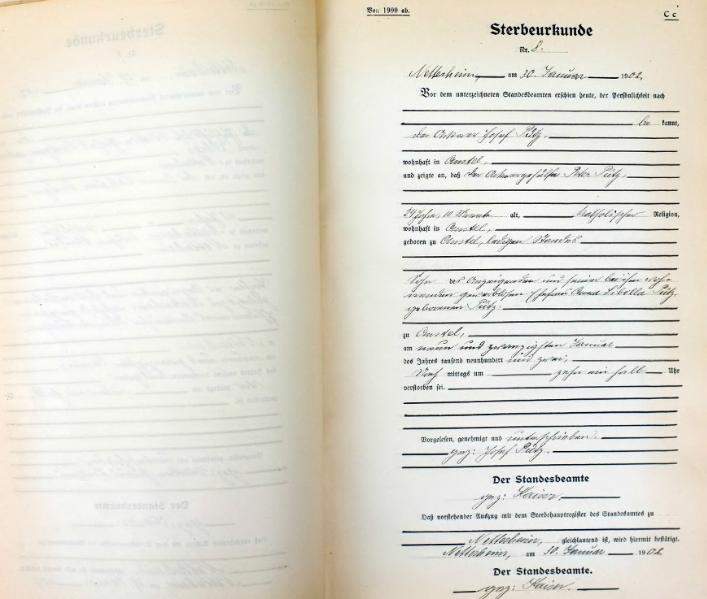 Von 1900 ab.
C c
Sterbeurkunde
Nr. 8.
Nettersheim, am 30. Januar 1902.
Vor dem unterzeichneten Standesbeamten erschien heute, der Persönlichkeit nach
be kannt,
der Ackerer Josef Pütz,
wohnhaft in
und zeigte an, daß der Ackergehülfe Peter Pütz,
24 Jahre, Monate alt, katholischer Religion,
wohnhaft in
geboren zu ledigen Standes
Sohn des Anzeigenden und seiner bei ihm woh-
nenden Ehefrau Anna Sibilla Pütz
geborenen Pütz.
zu
am neun und zwanzigsten Januar
des Jahres tausend neunhundert und zwei,
mittags um zehn ein halb Uhr
verstorben sei.
Vorgelesen, genehmigt und unterschrieben.
gez: Josef Pütz.
Der Standesbeamte
gez: Kaiser.
Daß vorstehender Auszug mit dem Sterbehauptregister des Standesamtes zu
Nettersheim, gleichlautend ist, wird hiermit bestätigt.
Nettersheim, am 30. Januar 1902.
Der Standesbeamte.
gez: Kaiser.